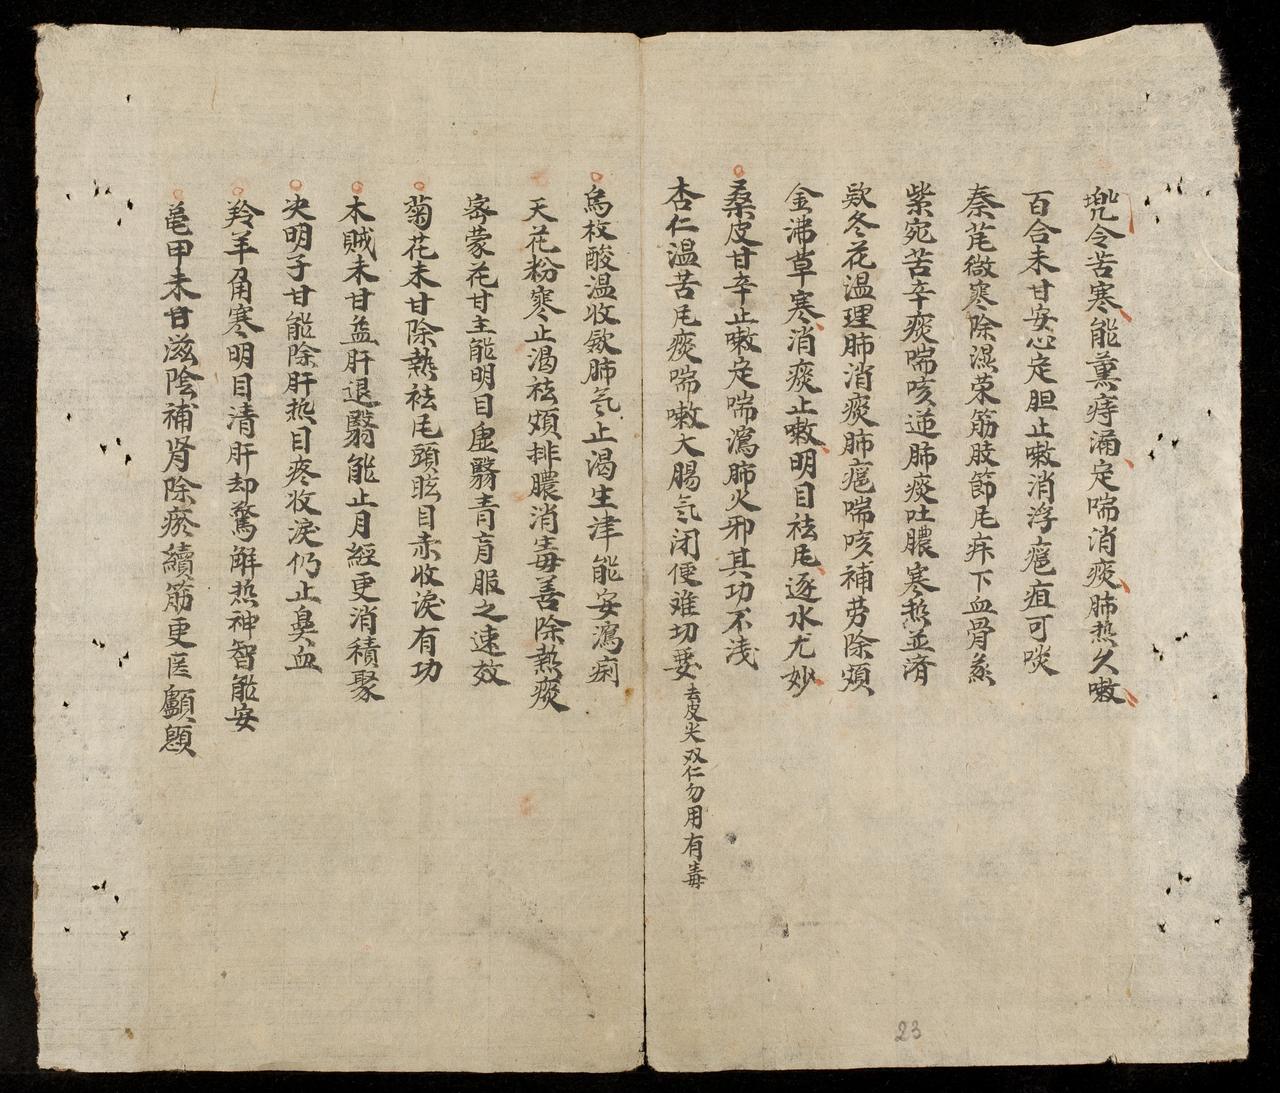 兠令苦寒能薰痔漏定喘消痰肺热久嗽
百合味甘安心定胆止嗽消浮癰疽可啖
秦芃微寒除濕荣筋肢節尪痳下血骨蒸
紫宛苦辛痰喘咳逆肺痰吐膿寒热並済
欵冬花温理肺消痰肺癰喘咳補劳除煩
金沸草寒消痰止嗽明目祛尪逐水尤妙
桑皮甘辛止嗽定喘瀉肺火邪其功不浅
杏仁温苦尪痰喘嗽大腸気闭便难切要去皮尖双仁勿用有毒
烏枚酸温收歛肺気止渴生津能安瀉痢
天花粉寒止渴祛煩排膿消毒善除熱痰
密蒙花甘主能明目虚翳青盲服之速效
菊花未甘除熱祛尪頭眩目赤收淚有功
木賊未甘益肝退翳能止月經更消積聚
决明子甘能除肝热目疼收淚仍止鼻血
羚羊角寒明目清肝却驚解热神智能安
亀甲未甘滋陰補肾除瘀續筋更医顱顖
23